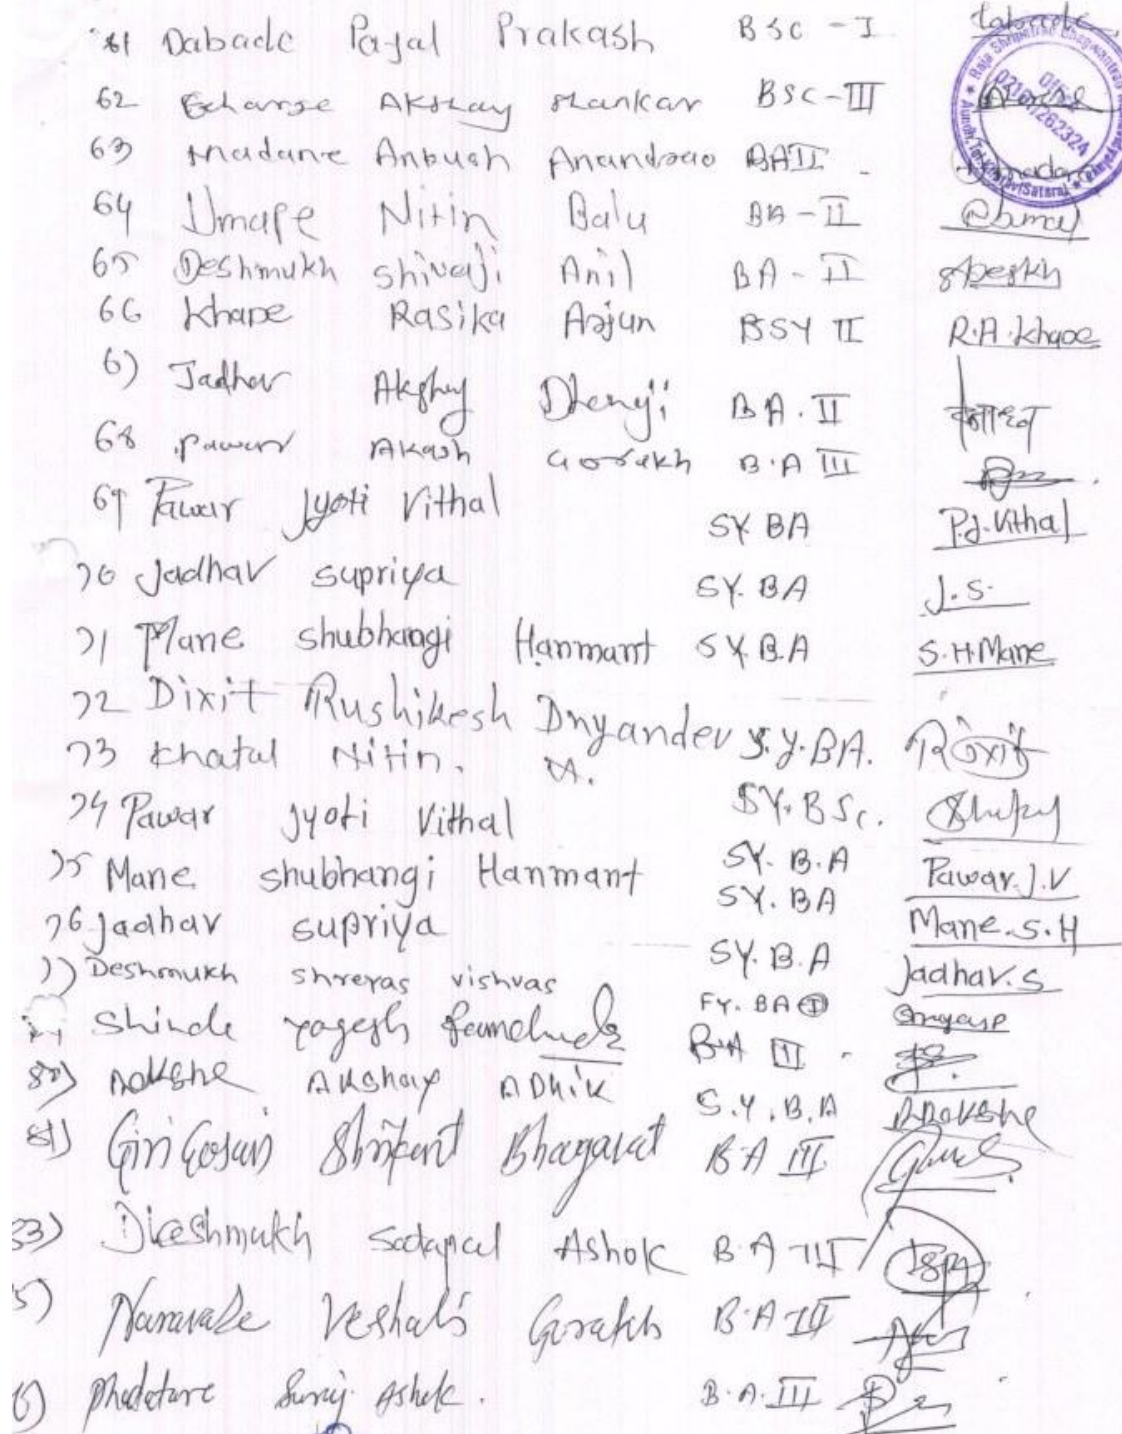 61 Dabade Payal Prakash BSC - I
62 Gharge Akshay Shankar BSC-III
63 Madane Ankush Anandrao BAII
64 Umape Nitin Balu BA-II
65 Deshmukh Shivaji Anil BA-II
66 Khade Rasika Arjun BSY II R.A.Khade
67 Jadhav Akshay BA.II
68 Pawar Akash Gorakh B.A III
69 Pawar Jyoti Vithal SY.BA P.J.Vithal
70 Jadhav supriya SY.BA J.S.
71 Mane shubhangi Hanmant SY.B.A S.H.Mane
72 Dixit Rushikesh Dnyandev S.Y.BA.
73 Khatal Nitin. M.
74 Pawar Jyoti Vithal SY.BSc.
75 Mane shubhangi Hanmant SY.B.A Pawar.J.V
76 Jadhav supriya SY.BA Mane.S.H
77) Deshmukh shreyas vishvas SY.B.A Jadhav.S
Shinde yogesh FY.BA I
80) Dokshe Akshay ADhik B.A II
81) Giri Gosavi Shrikant Bhagavat S.Y.B.A
B A III
83) Deshmukh Satapal Ashok B.A III
5) Naravade Veshali Gorakh B.A III
6) Phadatare Suraj Ashok. B.A.III